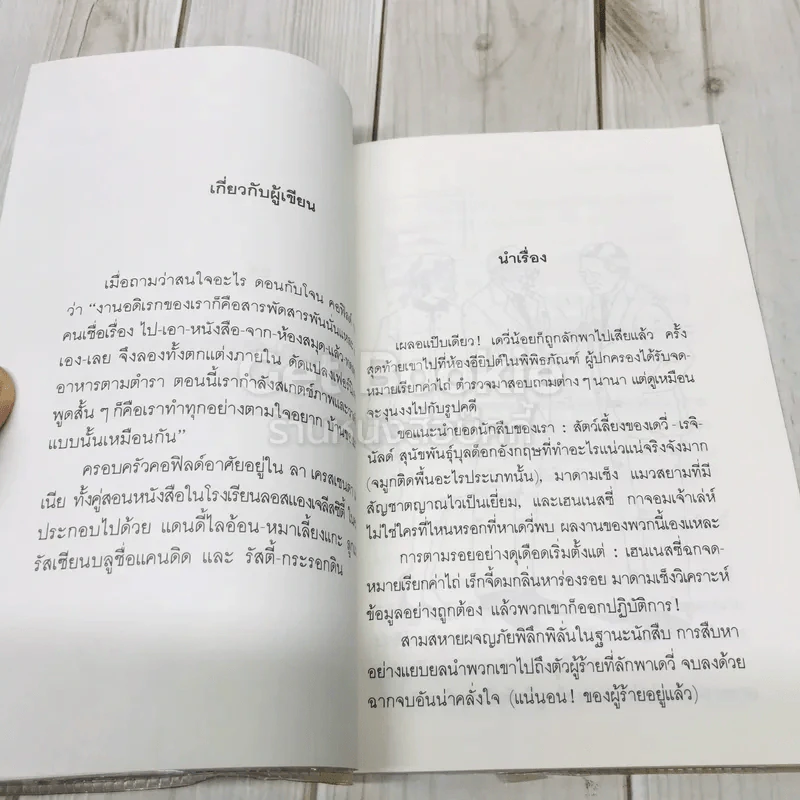 เกี่ยวกับผู้เขียน
เมื่อถามว่าสนใจอะไร ดอนกับโจน คอฟิลด์
ว่า “งานอดิเรกของเราก็คือสารพัดสารพันนั่นแหละ
คนเชื่อเรื่อง ไป-เอา-หนังสือ-จาก-ห้องสมุด-แล้ว
เอง-เลย จึงลองทั้งตกแต่งภายใน ดัดแปลงเฟอร์นิ
อาหารตามตำรา ตอนนี้เรากำลังสเกตช์ภาพและ
พูดสั้น ๆ ก็คือเราทำทุกอย่างตามใจอยาก บ้าน
แบบนั้นเหมือนกัน”
ครอบครัวคอฟิลด์อาศัยอยู่ใน ลา เครสเซนตา
เนีย ทั้งคู่สอนหนังสือในโรงเรียนลอสแองเจลีสซิตี้
ประกอบไปด้วย แดนดี้ไลอ้อน-หมาเลี้ยงแกะ
รัสเซียนบลูชื่อแคนดิด และ รัสตี้-กระรอกดิน
นำเรื่อง
เผลอแป๊บเดียว! เดวี่น้อยก็ถูกลักพาไปเสียแล้ว ครั้ง
สุดท้ายเขาไปที่ห้องอียิปต์ในพิพิธภัณฑ์ ผู้ปกครองได้รับจด-
หมายเรียกค่าไถ่ ตำรวจมาสอบถามต่าง ๆ นานา แต่ดูเหมือน
จะงุนงงไปกับรูปคดี
ขอแนะนำยอดนักสืบของเรา : สัตว์เลี้ยงของเดวี่ -เรจิ-
นัลด์ สุนัขพันธุ์บุลด็อกอังกฤษที่ทำอะไรแน่วแน่จริงจังมาก
(จมูกติดพื้นอะไรประเภทนั้น), มาดามเช็ง แมวสยามที่มี
สัญชาตญาณไวเป็นเยี่ยม, และเฮนเนสซี่ กาจอมเจ้าเล่ห์
ไม่ใช่ใครที่ไหนหรอกที่หาเดวี่พบ ผลงานของพวกนี้เองแหละ
การตามรอยอย่างดุเดือดเริ่มตั้งแต่ : เฮนเนสซี่ฉกจด-
หมายเรียกค่าไถ่ เร็กจี้ดมกลิ่นหาร่องรอย มาดามเช็งวิเคราะห์
ข้อมูลอย่างถูกต้อง แล้วพวกเขาก็ออกปฏิบัติการ!
สามสหายผจญภัยพิลึกพิลั่นในฐานะนักสืบ การสืบหา
อย่างแยบยลนำพวกเขาไปถึงตัวผู้ร้ายที่ลักพาเดวี่ จบลงด้วย
ฉากจบอันน่าคลั่งใจ (แน่นอน! ของผู้ร้ายอยู่แล้ว)